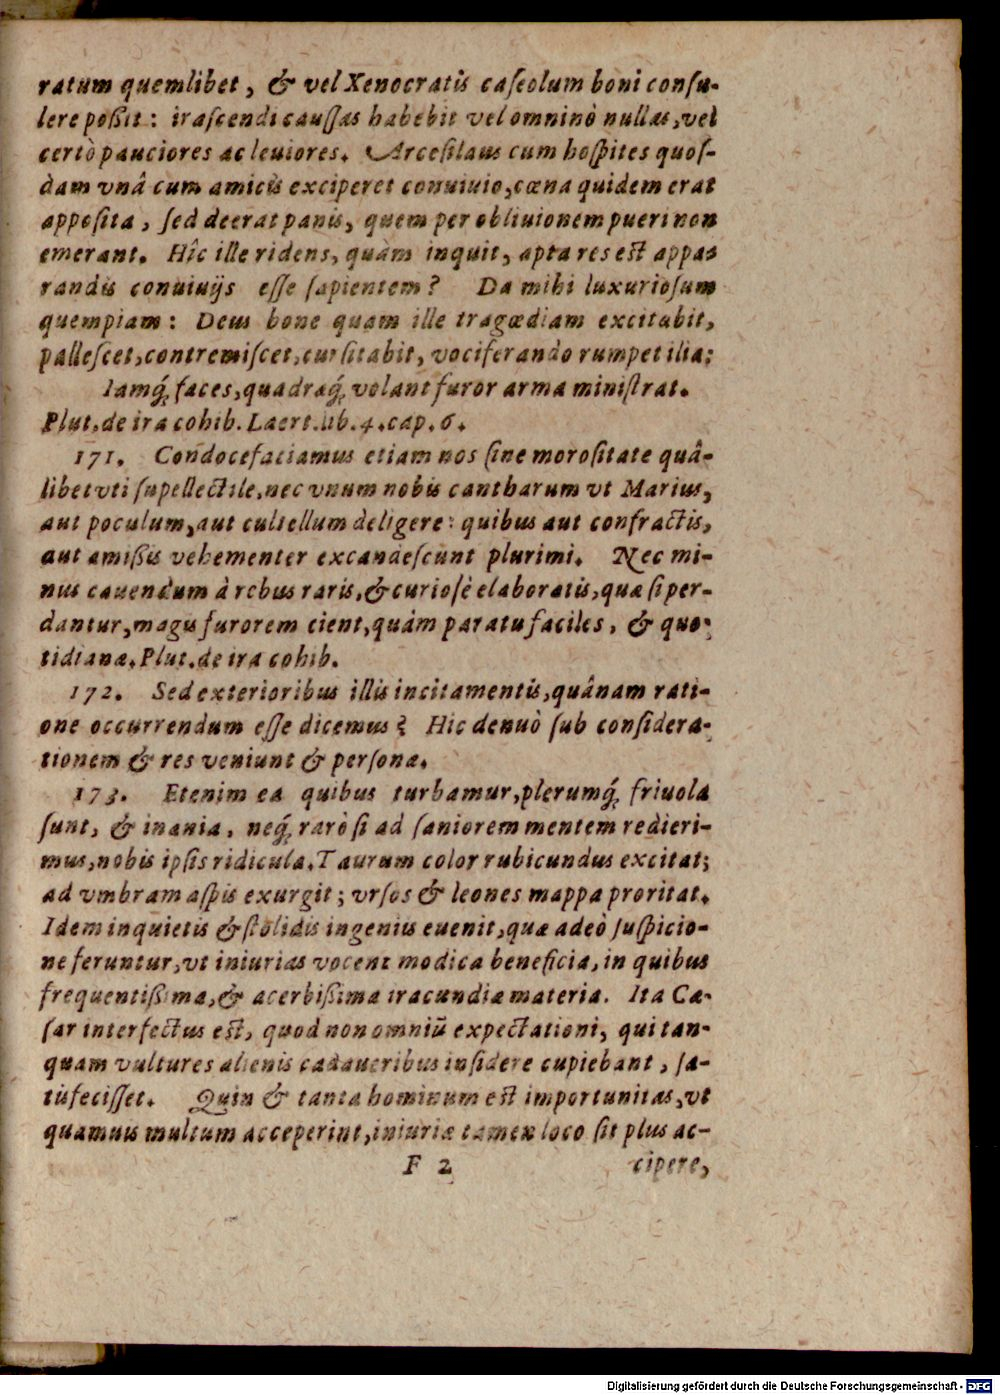 ratum quemlibet, & vel Xenocratis caſeolum boni conſu-
lere poßit: iraſcendi cauſſas habebit vel omninò nullas, vel
certò pauciores ac leuiores. Arceſilaus cum hoſpites quoſ-
dam vnâ cum amicis exciperet conuiuio, cœna quidem erat
appoſita, ſed deerat panis, quem per obliuionem pueri non
emerant. Hîc ille ridens, quàm inquit, apta res eſt appa-
randis conuiuijs eſſe ſapientem? Da mihi luxurioſum
quempiam: Deus bone quam ille tragœdiam excitabit,
palleſcet, contremiſcet, curſitabit, vociferando rumpet ilia;
Iamq́; faces, quadraq́; volant furor arma miniſtrat.
Plut. de ira cohib. Laert. lib. 4. cap. 6.
171. Condocefaciamus etiam nos ſine moroſitate quâ-
libet vti ſupellectile, nec vnum nobis cantharum vt Marius,
aut poculum, aut cultellum deligere: quibus aut confractis,
aut amißis vehementer excandeſcunt plurimi. Nec mi-
nus cauendum à rebus raris, & curioſè elaboratis, quæ ſi per-
dantur, magis furorem cient, quàm paratu faciles, & quo-
tidianæ. Plut. de ira cohib.
172. Sed exterioribus illis incitamentis, quânam rati-
one occurrendum eſſe dicemus? Hic denuò ſub conſidera-
tionem & res veniunt & perſonæ.
173. Etenim ea quibus turbamur, plerumq́; friuola
ſunt, & inania, neq́; rarò ſi ad ſaniorem mentem redieri-
mus, nobis ipſis ridicula. Taurum color rubicundus excitat;
ad vmbram aſpis exurgit; vrſos & leones mappa proritat.
Idem inquietis & ſtolidis ingeniis euenit, quæ adeò ſuſpicio-
ne feruntur, vt iniurias vocent modica beneficia, in quibus
frequentißima, & acerbißima iracundiæ materia. Ita Cæ-
ſar interfectus eſt, quod non omniũ expectationi, qui tan-
quam vultures alienis cadaueribus inſidere cupiebant, ſa-
tisfeciſſet. Quin & tanta hominum eſt importunitas, vt
quamuis multum acceperint, iniuriæ tamen loco ſit plus ac-
F 2 cipere,
Digitalisierung gefördert durch die Deutsche Forschungsgemeinschaft - DFG